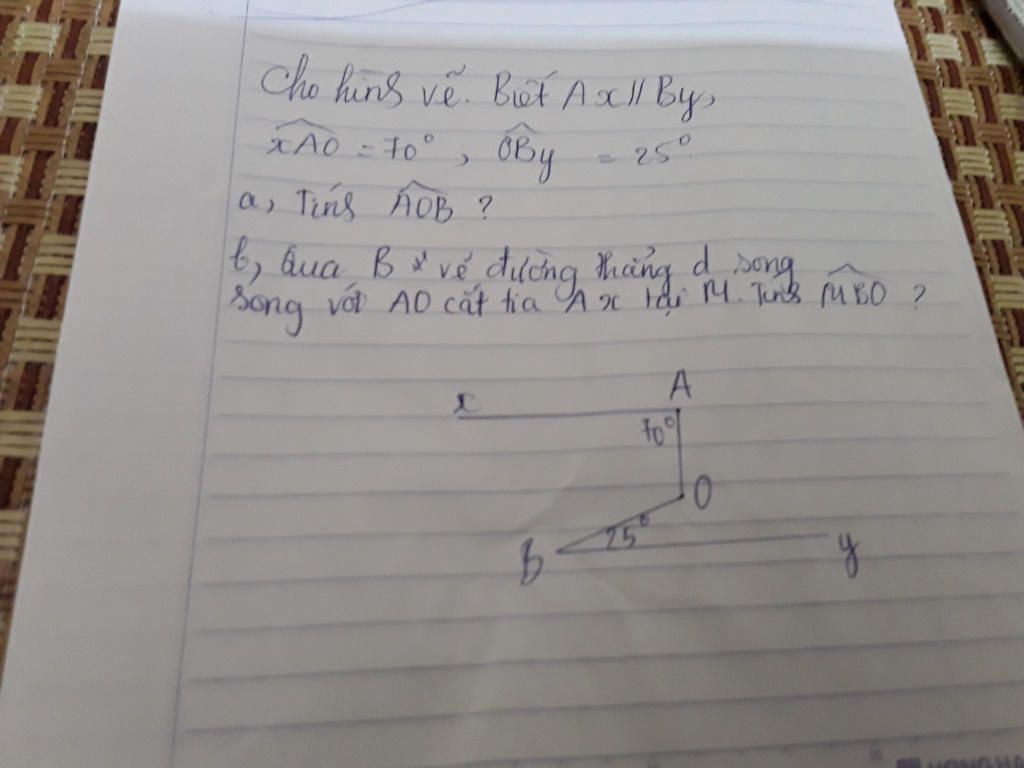 Cho hình vẽ. Biết Ax // By,
xAO = 70° ; OBy = 25°
a, Tính AOB ?
b, Qua B vẽ đường thẳng d song
song với AO cắt tia Ax tại M. Tính MBO ?
x A
70°
O
25°
B y
HONG HA